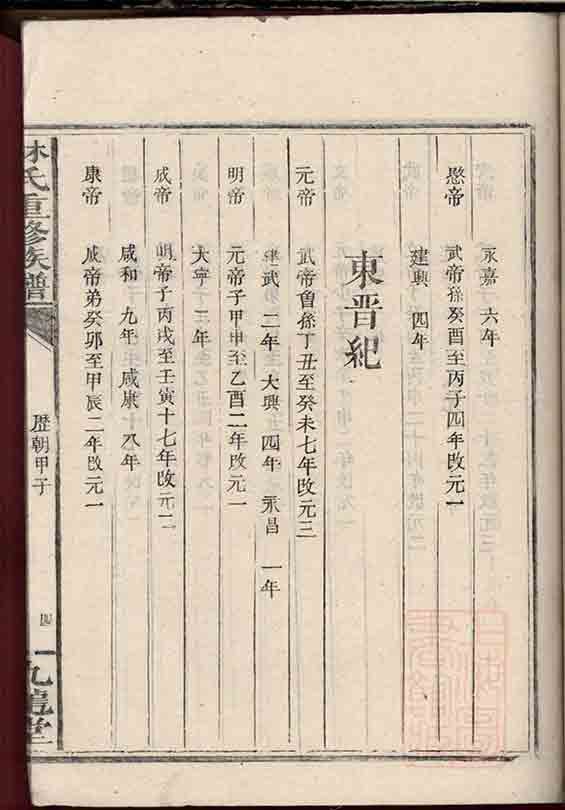 永嘉 六年
愍帝 武帝孫癸酉至丙子四年改元一
建興 四年
東晋紀
元帝 武帝曾孫丁丑至癸未七年改元三
建武 二年 大興 四年 永昌 一年
明帝 元帝子甲申至乙酉二年改元一
大寧 三年
成帝 明帝子丙戌至壬寅十七年改元二
咸和 九年 咸康 八年
康帝 成帝弟癸卯至甲辰二年改元一
林氏重修族譜
歷朝甲子
四
九龍堂